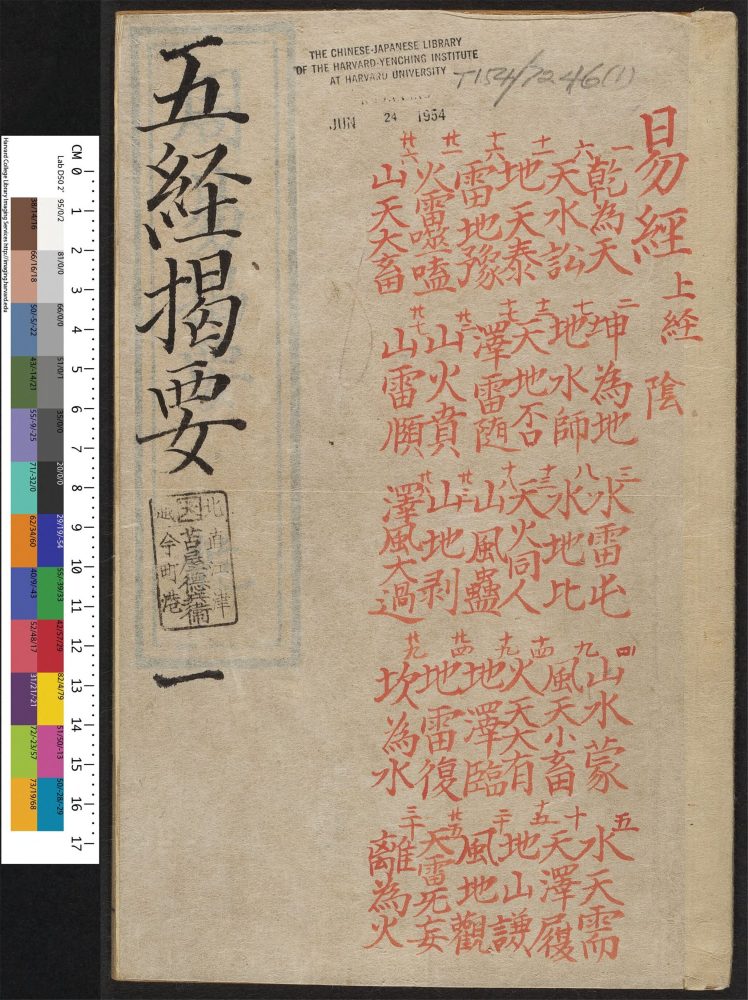 THE CHINESE-JAPANESE LIBRARY
OF THE HARVARD-YENCHING INSTITUTE
AT HARVARD UNIVERSITY
JUN 24 1954
T154/7246(1)
易經 上經 陰
一 乾為天 二 坤為地 三 水雷屯 四 山水蒙 五 水天需
六 天水訟 七 地水師 八 水地比 九 風天小畜 十 天澤履
十一 地天泰 十二 天地否 十三 天火同人 十四 火天大有 十五 地山謙
十六 雷地豫 十七 澤雷随 十八 山風蠱 十九 地澤臨 二十 風地觀
廿一 火雷噬嗑 廿二 山火賁 廿三 山地剥 廿四 地雷復 廿五 天雷无妄
廿六 山天大畜 廿七 山雷頤 廿八 澤風大過 廿九 坎為水 三十 離為火
五経掲要
北直江津
古屋德兵衛
越今町港
一
CM 0 1 2 3 4 5 6 7 8 9 10 11 12 13 14 15 16 17
Harvard College Library Imaging Services http://imaging.harvard.edu
Lab D50 2°
38/14/16 66/16/18 50/-5/-22 43/-14/21 55/-9/-25 71/-32/0 62/34/60 40/9/-43 52/48/17 31/21/-21 72/-23/57 73/19/68
95/0/2 81/0/0 66/0/0 51/0/1 35/0/0 20/0/0 29/19/-54 55/-39/33 42/57/29 82/4/79 51/50/-13 50/-28/-29